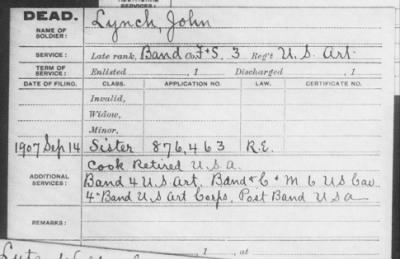 SERVICES:
DEAD. Lynch, John
NAME OF SOLDIER:
SERVICE: Late rank, Band Co. F+S, 3 Reg't U.S. Art.
TERM OF SERVICE: Enlisted , 1 Discharged , 1
DATE OF FILING. CLASS. APPLICATION NO. LAW. CERTIFICATE NO.
Invalid,
Widow,
Minor,
1907 Sep 14 Sister 876,463 R.E.
Cook Retired U.S.A.
ADDITIONAL SERVICES: Band 4 U.S. Art, Band & C + M 6 U.S. Cav
4" Band U.S. Art Corps, Post Band U.S.A
REMARKS:
, 1 , at